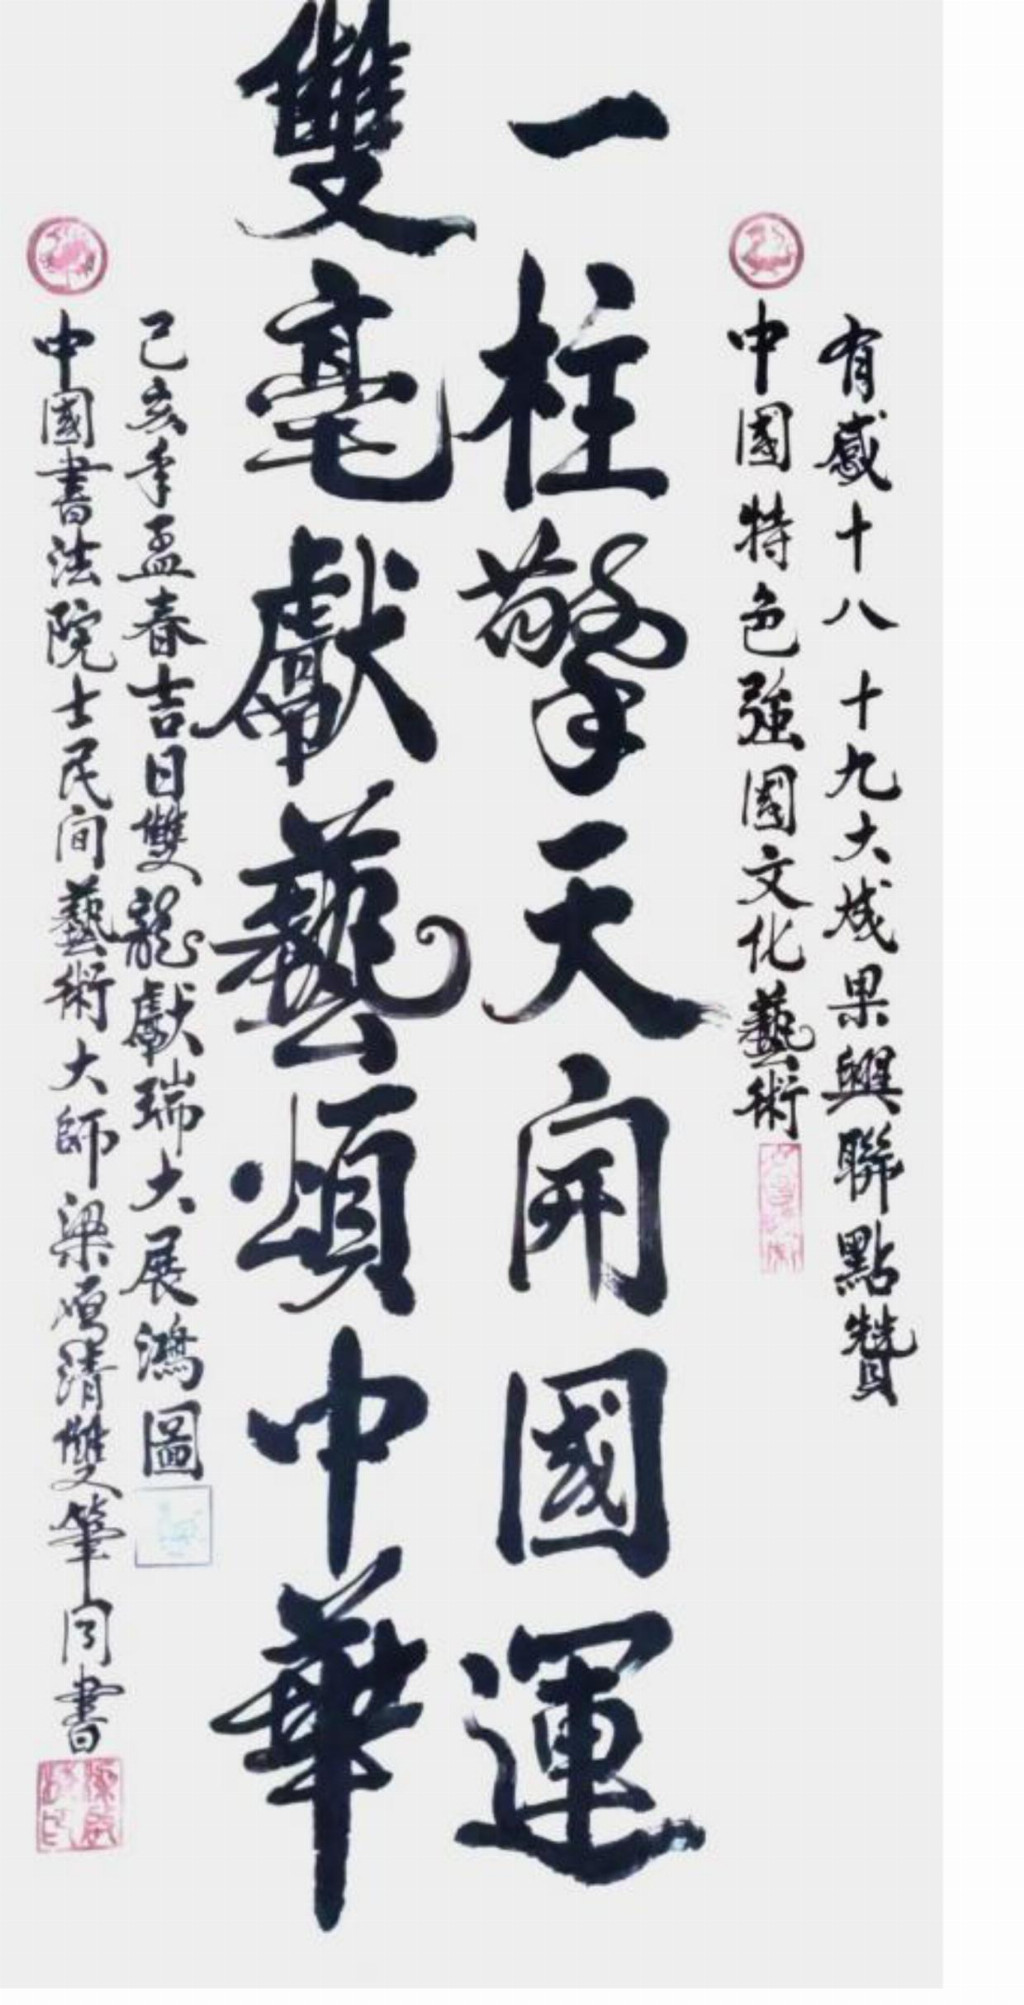 有感十八十九大成果興聯點贊
中國特色強國文化藝術
一柱擎天開國運
雙毫獻藝頌中華
己亥年孟春吉日雙龍獻瑞大展鴻圖
中國書法院士民间藝術大師梁鳴清雙筆同書